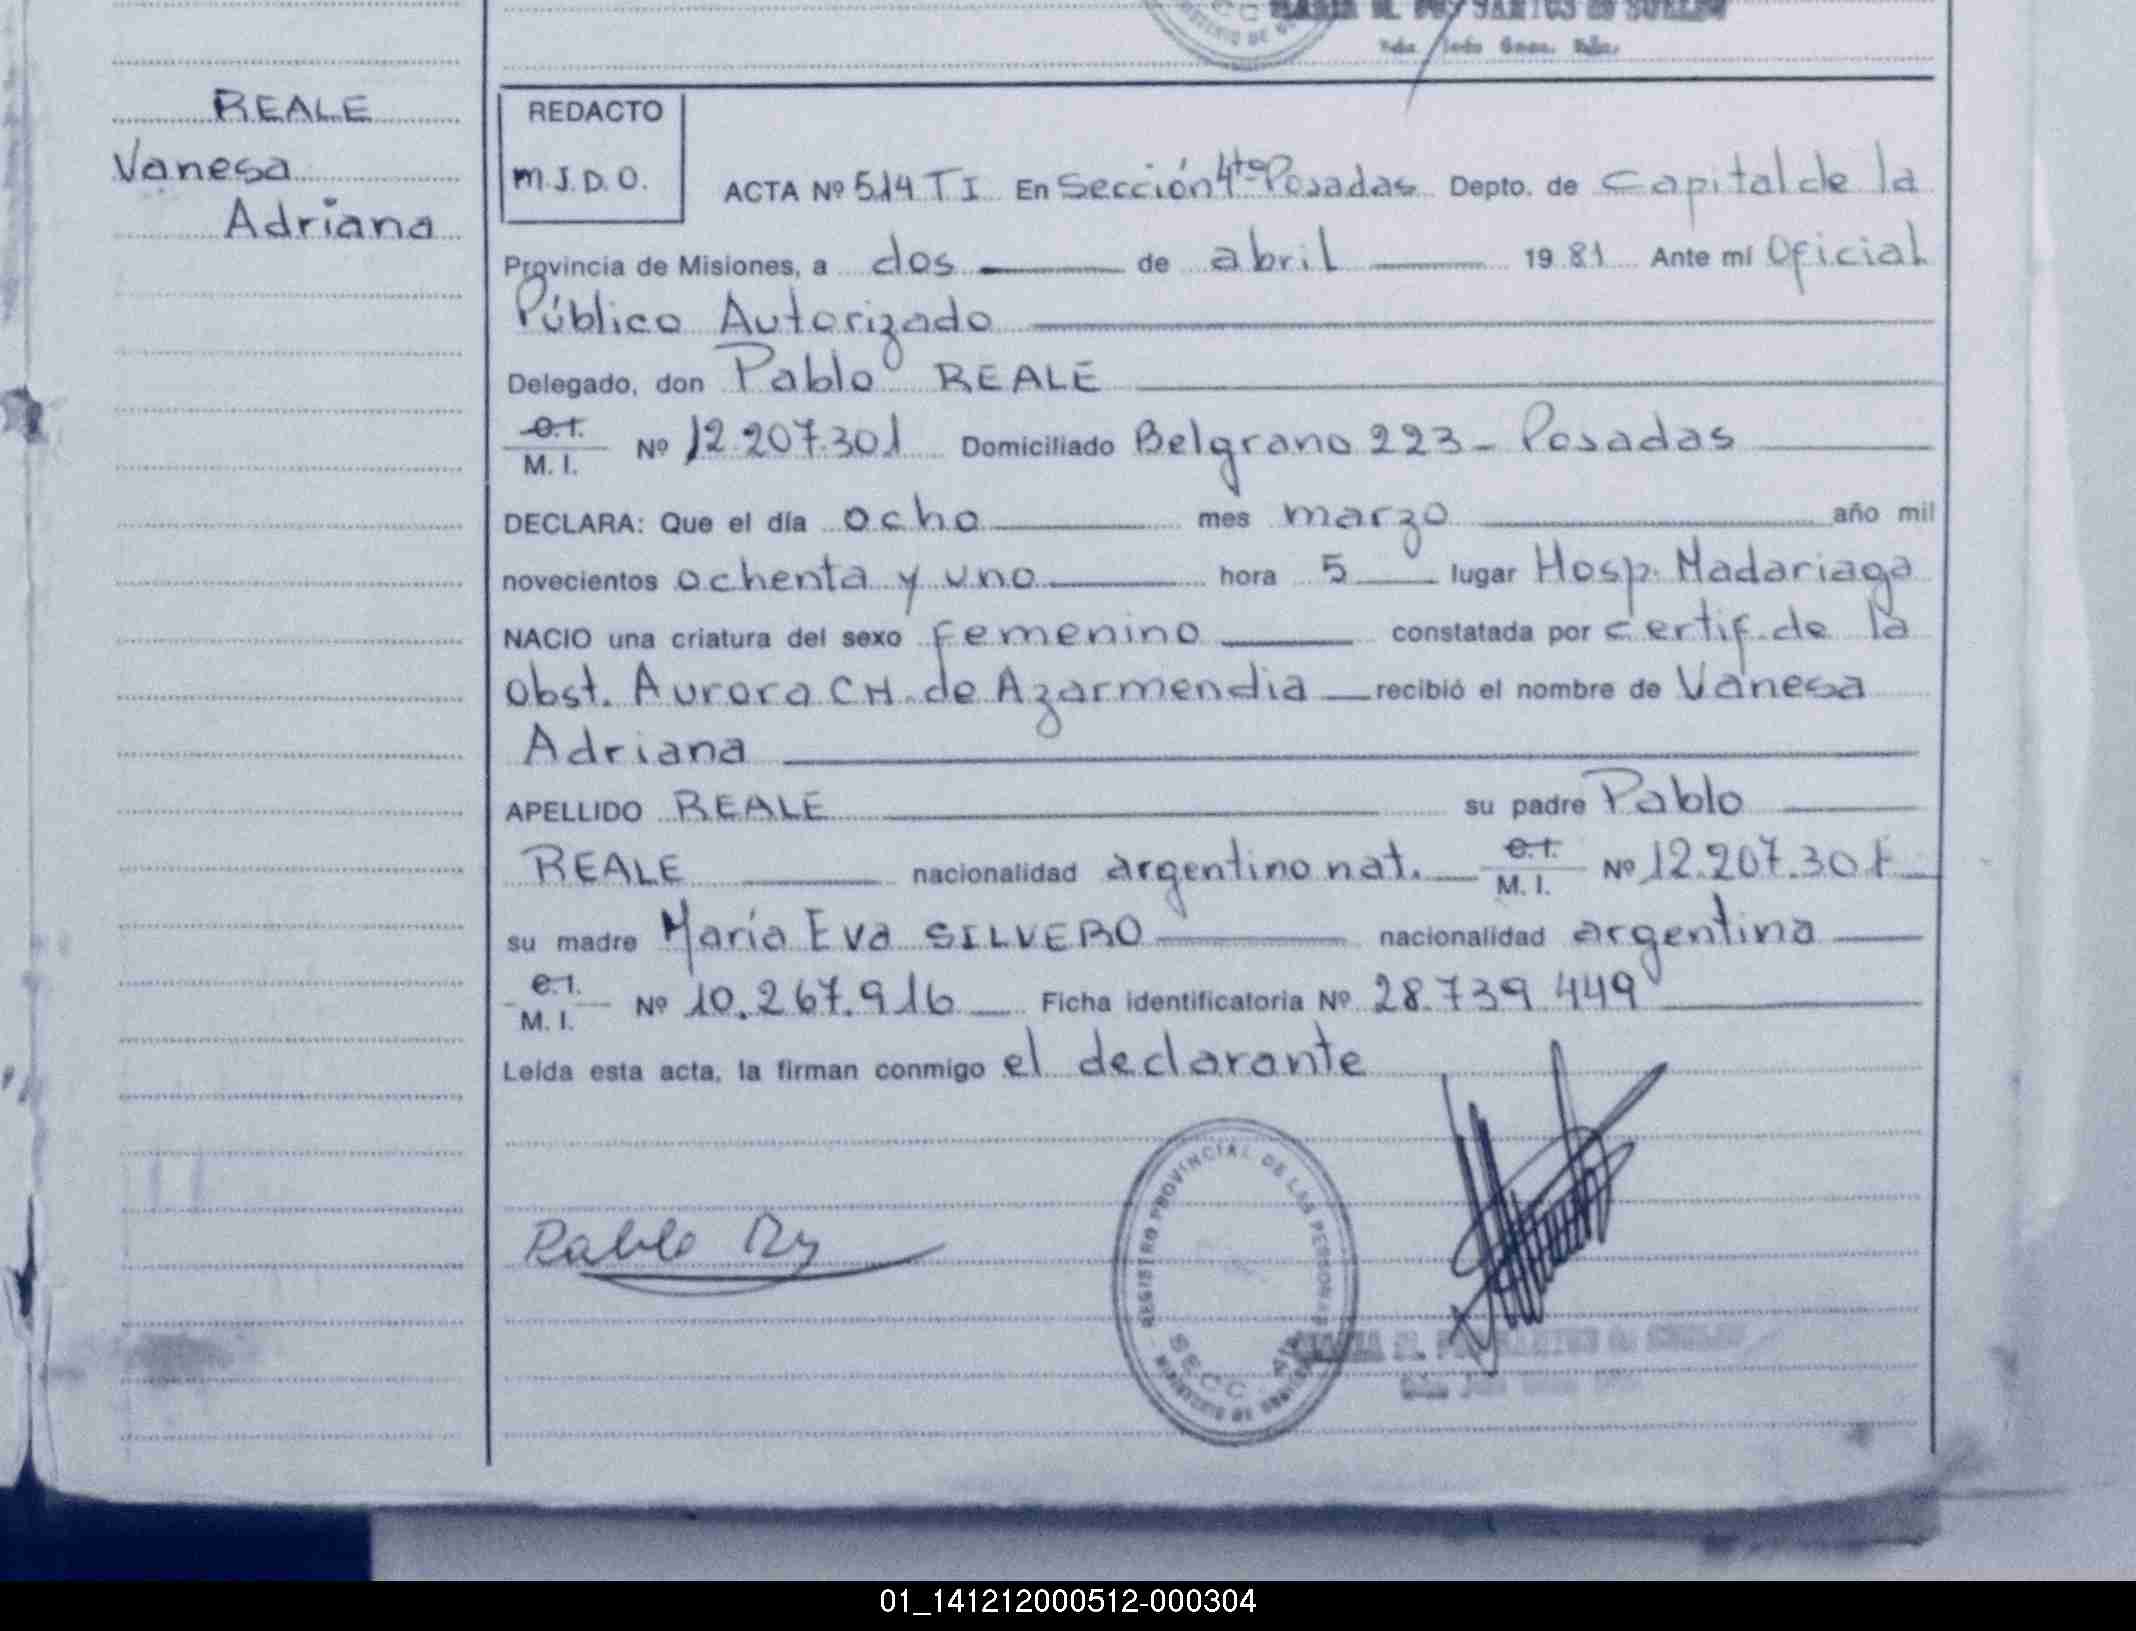 REALE
Vanesa
Adriana
REDACTO
M.J.D.O.
ACTA Nº 514 T I En Sección 4ta Posadas Depto. de Capital de la
Provincia de Misiones, a dos de abril 1981 Ante mí Oficial
Público Autorizado
Delegado, don Pablo REALE
C.I.
M. I. Nº 12.207.301 Domiciliado Belgrano 223 - Posadas
DECLARA: Que el día ocho mes marzo año mil
novecientos ochenta y uno hora 5 lugar Hosp. Madariaga
NACIO una criatura del sexo femenino constatada por certif. de la
Obst. Aurora CH. de Azarmendia recibió el nombre de Vanesa
Adriana
APELLIDO REALE su padre Pablo
REALE nacionalidad argentino nat. C.I.
M. I. Nº 12.207.301
su madre María Eva SILVERO nacionalidad argentina
C.I.
M. I. Nº 10.267.916 Ficha identificatoria Nº 28.739.449
Leída esta acta, la firman conmigo el declarante
Pablo
REGISTRO PROVINCIAL DE LAS PERSONAS
SECC. 4ta
MINISTERIO DE GOBIERNO
01_141212000512-000304